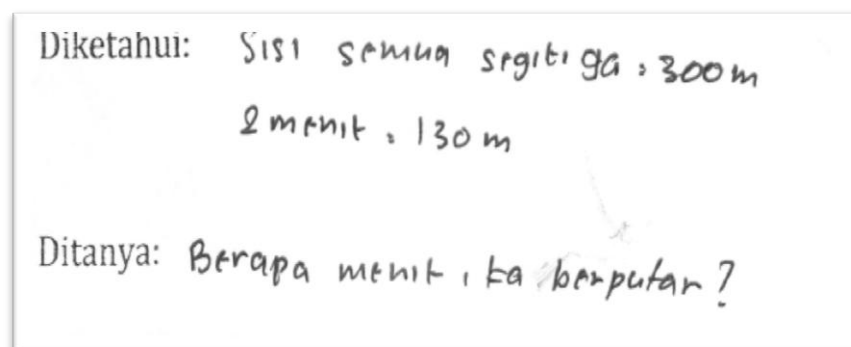 Diketahui: Sisi semua segitiga = 300 m
2 menit = 130 m
Ditanya: Berapa menit ita berputar?